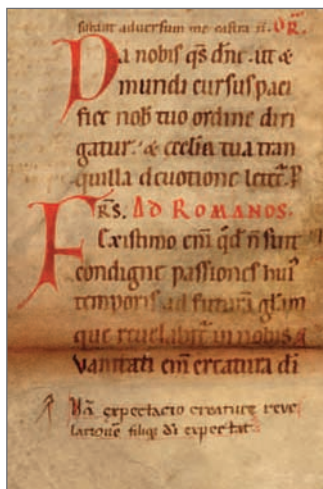 sistant adversum me castra n̄. OR̄.
Da nobis qs̄ dn̄e. ut &
mundi cursus paci
fice nob̄ tuo ordine diri
gatur. & ecclīa tua tran
quilla devotione letet̄. P̄
FR̄S. AD ROMANOS.
Existimo enī qd̄ n̄ sunt
condigne passiones hui᾽
temporis ad futurā glām
que revelabit̄ in nobis
vanitati enī creatura
Nā expectacio creature reve
lationē filioꝝ dī expectat